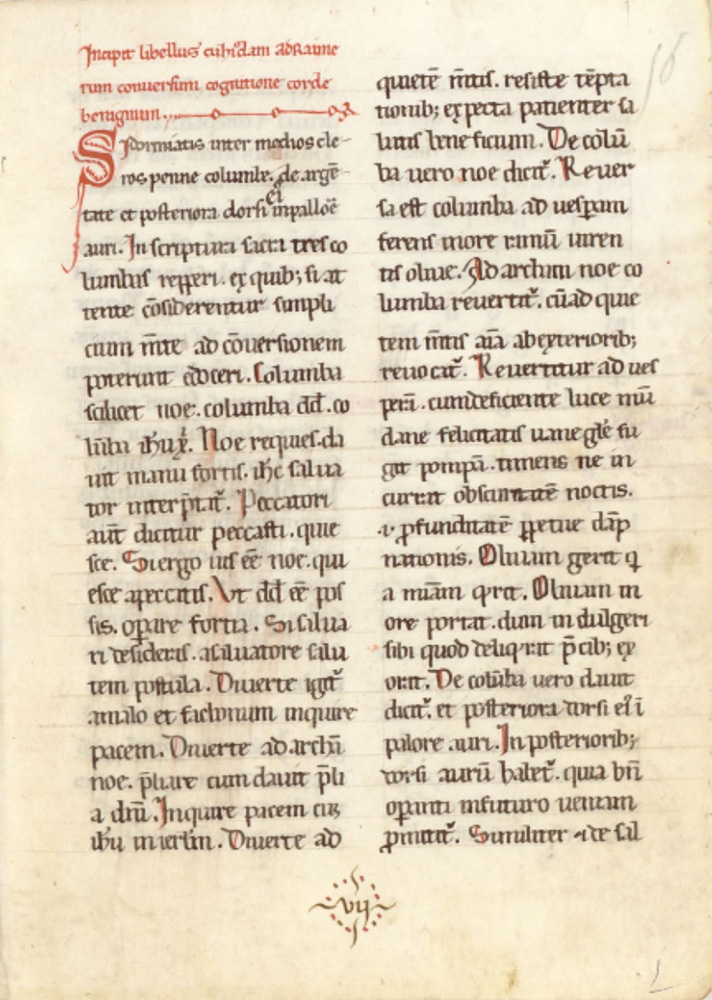 Incipit libellus cuiusdam ad Raine
rum conuersum cognitione corde
benignum.
Si dormiatis inter medios cle
ros penne columbe. de argē
tate et posteriora dorsi ei in palloē
auri. In scriptura sacra tres co
lumbas repperi. ex quib; si at
tente cōsiderentur simpli
cium mēte ad cōuersionem
poterunt edoceri. Columba
scilicet noe. columba dd̄. co
lūba ihu xp̄i. Noe requies. da
uit manu fortis. ihc salua
tor interp̄tat̄. Peccatori
aut̄ dicitur peccasti. quie
sce. Si ergo uis eē noe. qui
esce a peccatis. Vt dd̄ eē pos
sis. opare fortia. Si salua
ri desideras. a saluatore salu
tem postula. Diuerte igit̄
a malo et fac bonum inquire
pacem. Diuerte ad archā
noe. p̄liare cum dauit p̄li
a dn̄i. Inquire pacem cū
ihu in ierl̄m. Diuerte ad
quietē m̄tis. resiste tēpta
tionib; expecta patienter sa
lutis beneficium. De colū
ba uero noe dicit̄. Reuer
sa est columba ad uesperam
ferens more ramū uiren
tis oliue. Ad archam noe co
lumba reuertit̄. cū ad quie
tem m̄tis aīa ab exteriorib;
reuocat̄. Reuertitur ad ues
perā. cum deficiente luce mū
dane felicitatis uane gl̄e fu
git pompā. timens ne in
currat obscuritatē noctis.
.i. pfunditatē ppetue dāp
nationis. Oliuam gerit q
a miam qrit. Oliuam in
ore portat. dum indulgeri
sibi quod deliqrit p̄cib; ex
orat. De colūba uero dauit
dicit̄. et posteriora dorsi ei ī
palore auri. In posteriorib;
dorsi aurū habet̄. quia bn̄
opanti in futuro ueniam
pmittit̄. Similiter de sal
vii